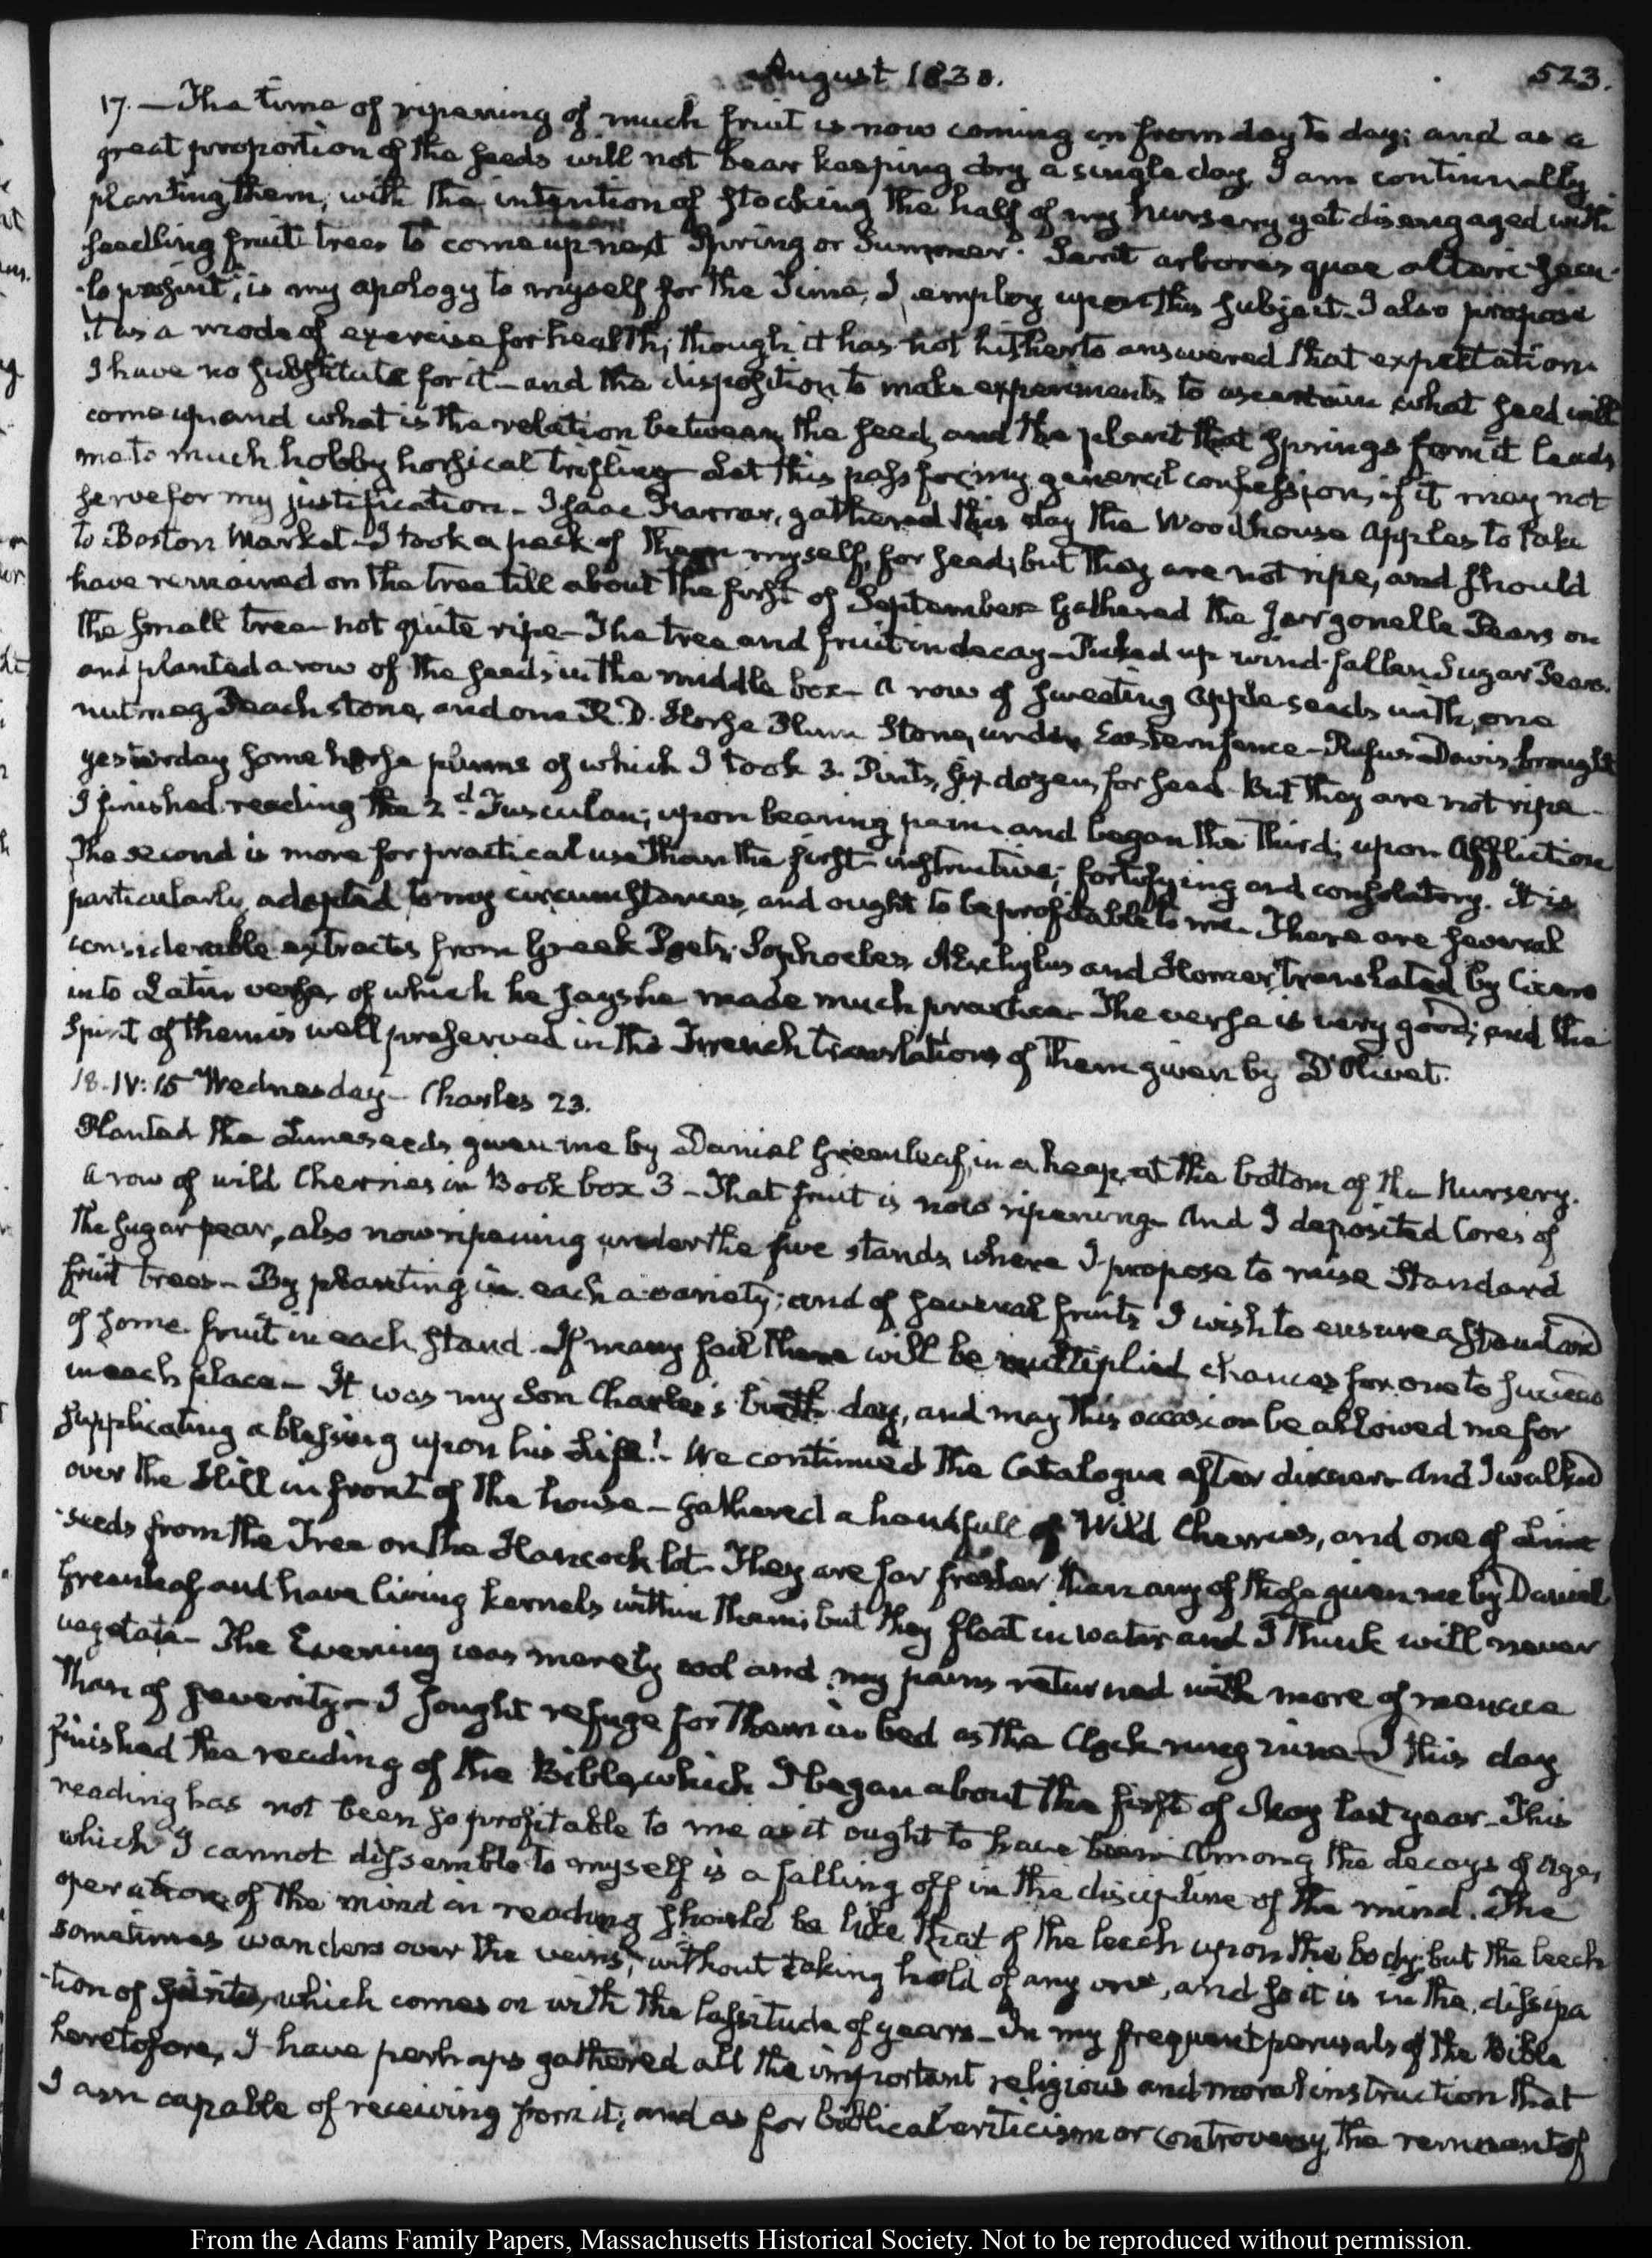 August 1830.
523.
17. — The time of ripening of much fruit is now coming on from day to day; and as a
great proportion of the seeds will not bear keeping dry a single day, I am continually
planting them, with the intention of stocking the half of my nursery yet disengaged with
seedling fruit trees to come up next Spring or Summer. Serit arbores quae alteri secu-
-lo prosint, is my apology to myself for the Time, I employ upon this subject. I also propose
it as a mode of exercise for health; though it has not hitherto answered that expectation.
I have no substitute for it — and the disposition to make experiments to ascertain what seed will
come up and what is the relation between the seed, and the plant that springs from it leads
me to much hobby horsical trifling — Let this pass for my general confession, if it may not
serve for my justification — Isaac Farrar, gathered this day the Woodhouse Apples to take
to Boston Market — I took a peck of them myself, for seed; but they are not ripe, and should
have remained on the tree till about the first of September — Gathered the Jargonelle Pears on
the small tree — not quite ripe — The tree and fruit in decay — Picked up wind-fallen Sugar Pears.
and planted a row of the seeds in the middle box — A row of sweeting apple seeds with, one
nutmeg Peach stone, and one R. D. Horse Plum Stone, under Eastern fence — Rufus Davis, brought
yesterday some horse plums of which I took 3. Pints, six dozen, for seed — But they are not ripe —
I finished reading the 2d. Tusculan; upon bearing pain — and began the Third; upon Affliction
The second is more for practical use than the first — instructive; fortifying and consolatory. It is
particularly, adapted to my circumstances, and ought to be profitable to me — There are several
considerable extracts from Greek Poets; Sophocles, Aeschylus and Homer, translated by Cicero
into Latin verse, of which he says he made much practice — The verse is very good; and the
Spirit of them is well preserved in the French translations of them given by D'Olivet.
18. IV: 15 Wednesday — Charles 23.
Planted the Lime seeds given me by Daniel Greenleaf, in a heap, at the bottom of the Nursery.
A row of wild Cherries in Book box 3 — That fruit is now ripening — And I deposited Cores of
the Sugar pear, also now ripening under the five stands, where I propose to raise Standard
fruit trees — By planting in each a variety; and of several fruits I wish to ensure a Standard
of some fruit in each stand. If many fail there will be multiplied chances for one to succeed
in each place — It was my Son Charles's birth day, and may this occasion be allowed me for
supplicating a blessing upon his Life! — We continued the Catalogue after dinner — And I walked
over the Hill in front of the house — gathered a handfull of Wild Cherries, and one of Lime
-seeds from the Tree on the Hancock lot — They are far fresher than any of those given me by Daniel
Greenleaf and have living kernels within them; but they float in water and I think will never
vegetate — The Evening was merely cool and my pains returned with more of menace
than of severity — I sought refuge for them in bed as the Clock rung nine — I this day
finished the reading of the Bible, which I began about the first of May last year — This
reading has not been so profitable to me as it ought to have been — Among the decays of Age,
which I cannot dissemble to myself is a falling off in the discipline of the mind. The
operations of the mind in reading should be like that of the leech upon the body; but the leech
sometimes wanders over the veins, without taking hold of any one, and so it is in the dissipa
-tion of spirits, which comes on with the lassitude of years — In my frequent perusals of the Bible
heretofore, I have perhaps gathered all the important religious and moral instruction that
I am capable of receiving from it; and as for biblical criticism or controversy, the remnant of
From the Adams Family Papers, Massachusetts Historical Society. Not to be reproduced without permission.